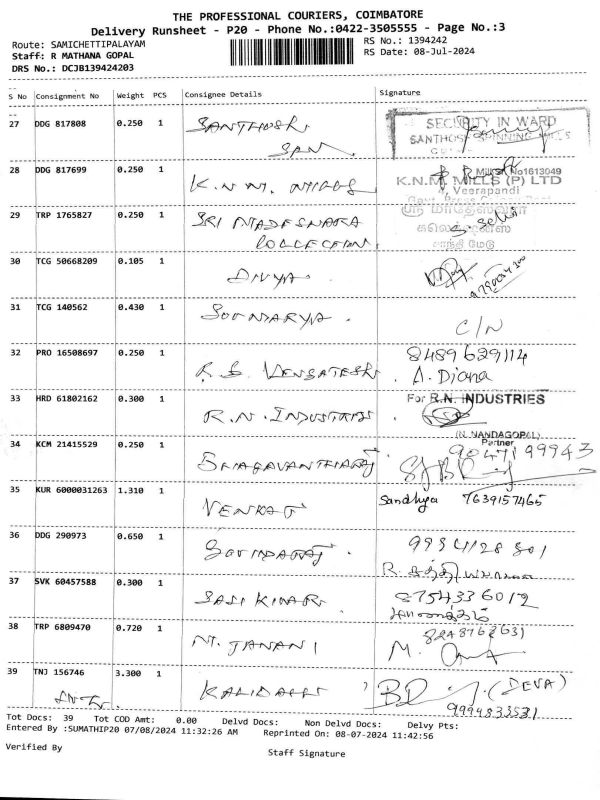 THE PROFESSIONAL COURIERS, COIMBATORE
Delivery Runsheet - P20 - Phone No.:0422-3505555 - Page No.:3
Route: SAMICHETTIPALAYAM
RS No.: 1394242
Staff: R MATHANA GOPAL
RS Date: 08-Jul-2024
DRS No.: DCJB139424203
S No Consignment No Weight PCS Consignee Details Signature
27 DDG 817808 0.250 1 SANTHOSH
SECURITY IN WARD
SANTHOSH SPINNING MILLS
SPN
28 DDG 817699 0.250 1 K.N.M. MILLS
No1613049
K.N.M. MILLS (P) LTD
Veerapandi
29 TRP 1765827 0.250 1 SRI MADESWARA
ஸ்ரீ மாதேஸ்வரா
COLLECTION
கலெக்ஷன்ஸ்
காந்தி மேடு
30 TCG 50668209 0.105 1 DIVYA
31 TCG 140562 0.430 1 SOUNDARYA
C/N
32 PRO 16508697 0.250 1 R.S. VENGATESH
8489629114
A. Diana
33 HRD 61802162 0.300 1 R.N. INDUSTRIES
For R.N. INDUSTRIES
(N. NANDAGOPAL)
Partner
34 KCM 21415529 0.250 1 BHAGAVANTHARAJ
9047199943
35 KUR 6000031263 1.310 1 VENKAT
Sandhya 7639157465
36 DDG 290973 0.650 1 GOVINDARAJ
9994128801
37 SVK 60457588 0.300 1 SASI KUMAR
8754336012
38 TRP 6809470 0.720 1 M. JANANI
M.
39 TNJ 156746 3.300 1 KALIDASS
(DEVA)
9994833531
Tot Docs: 39 Tot COD Amt: 0.00 Delvd Docs: Non Delvd Docs: Delvy Pts:
Entered By :SUMATHIP20 07/08/2024 11:32:26 AM Reprinted On: 08-07-2024 11:42:56
Verified By
Staff Signature